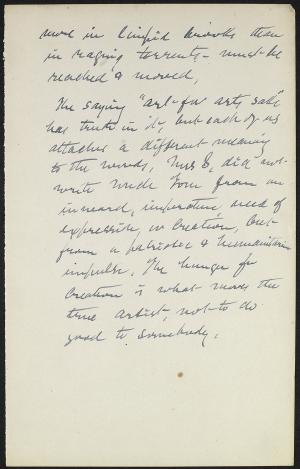 more in limpid brooks than
in raging torrents - must be
reached & moved.
The saying "art-for arts sake"
has truth in it, but each of us
attaches a different meaning
to the words. Mrs S. did not
write Uncle Tom from an
inward, imperative need of
expression, or Creation, but
from a patriotic & humanitarian
impulse. The hunger for
Creation is what moves the
true artist, not to do
good to somebody.